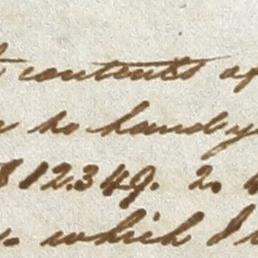 contents of
to hand y
12.349. 2.
which I